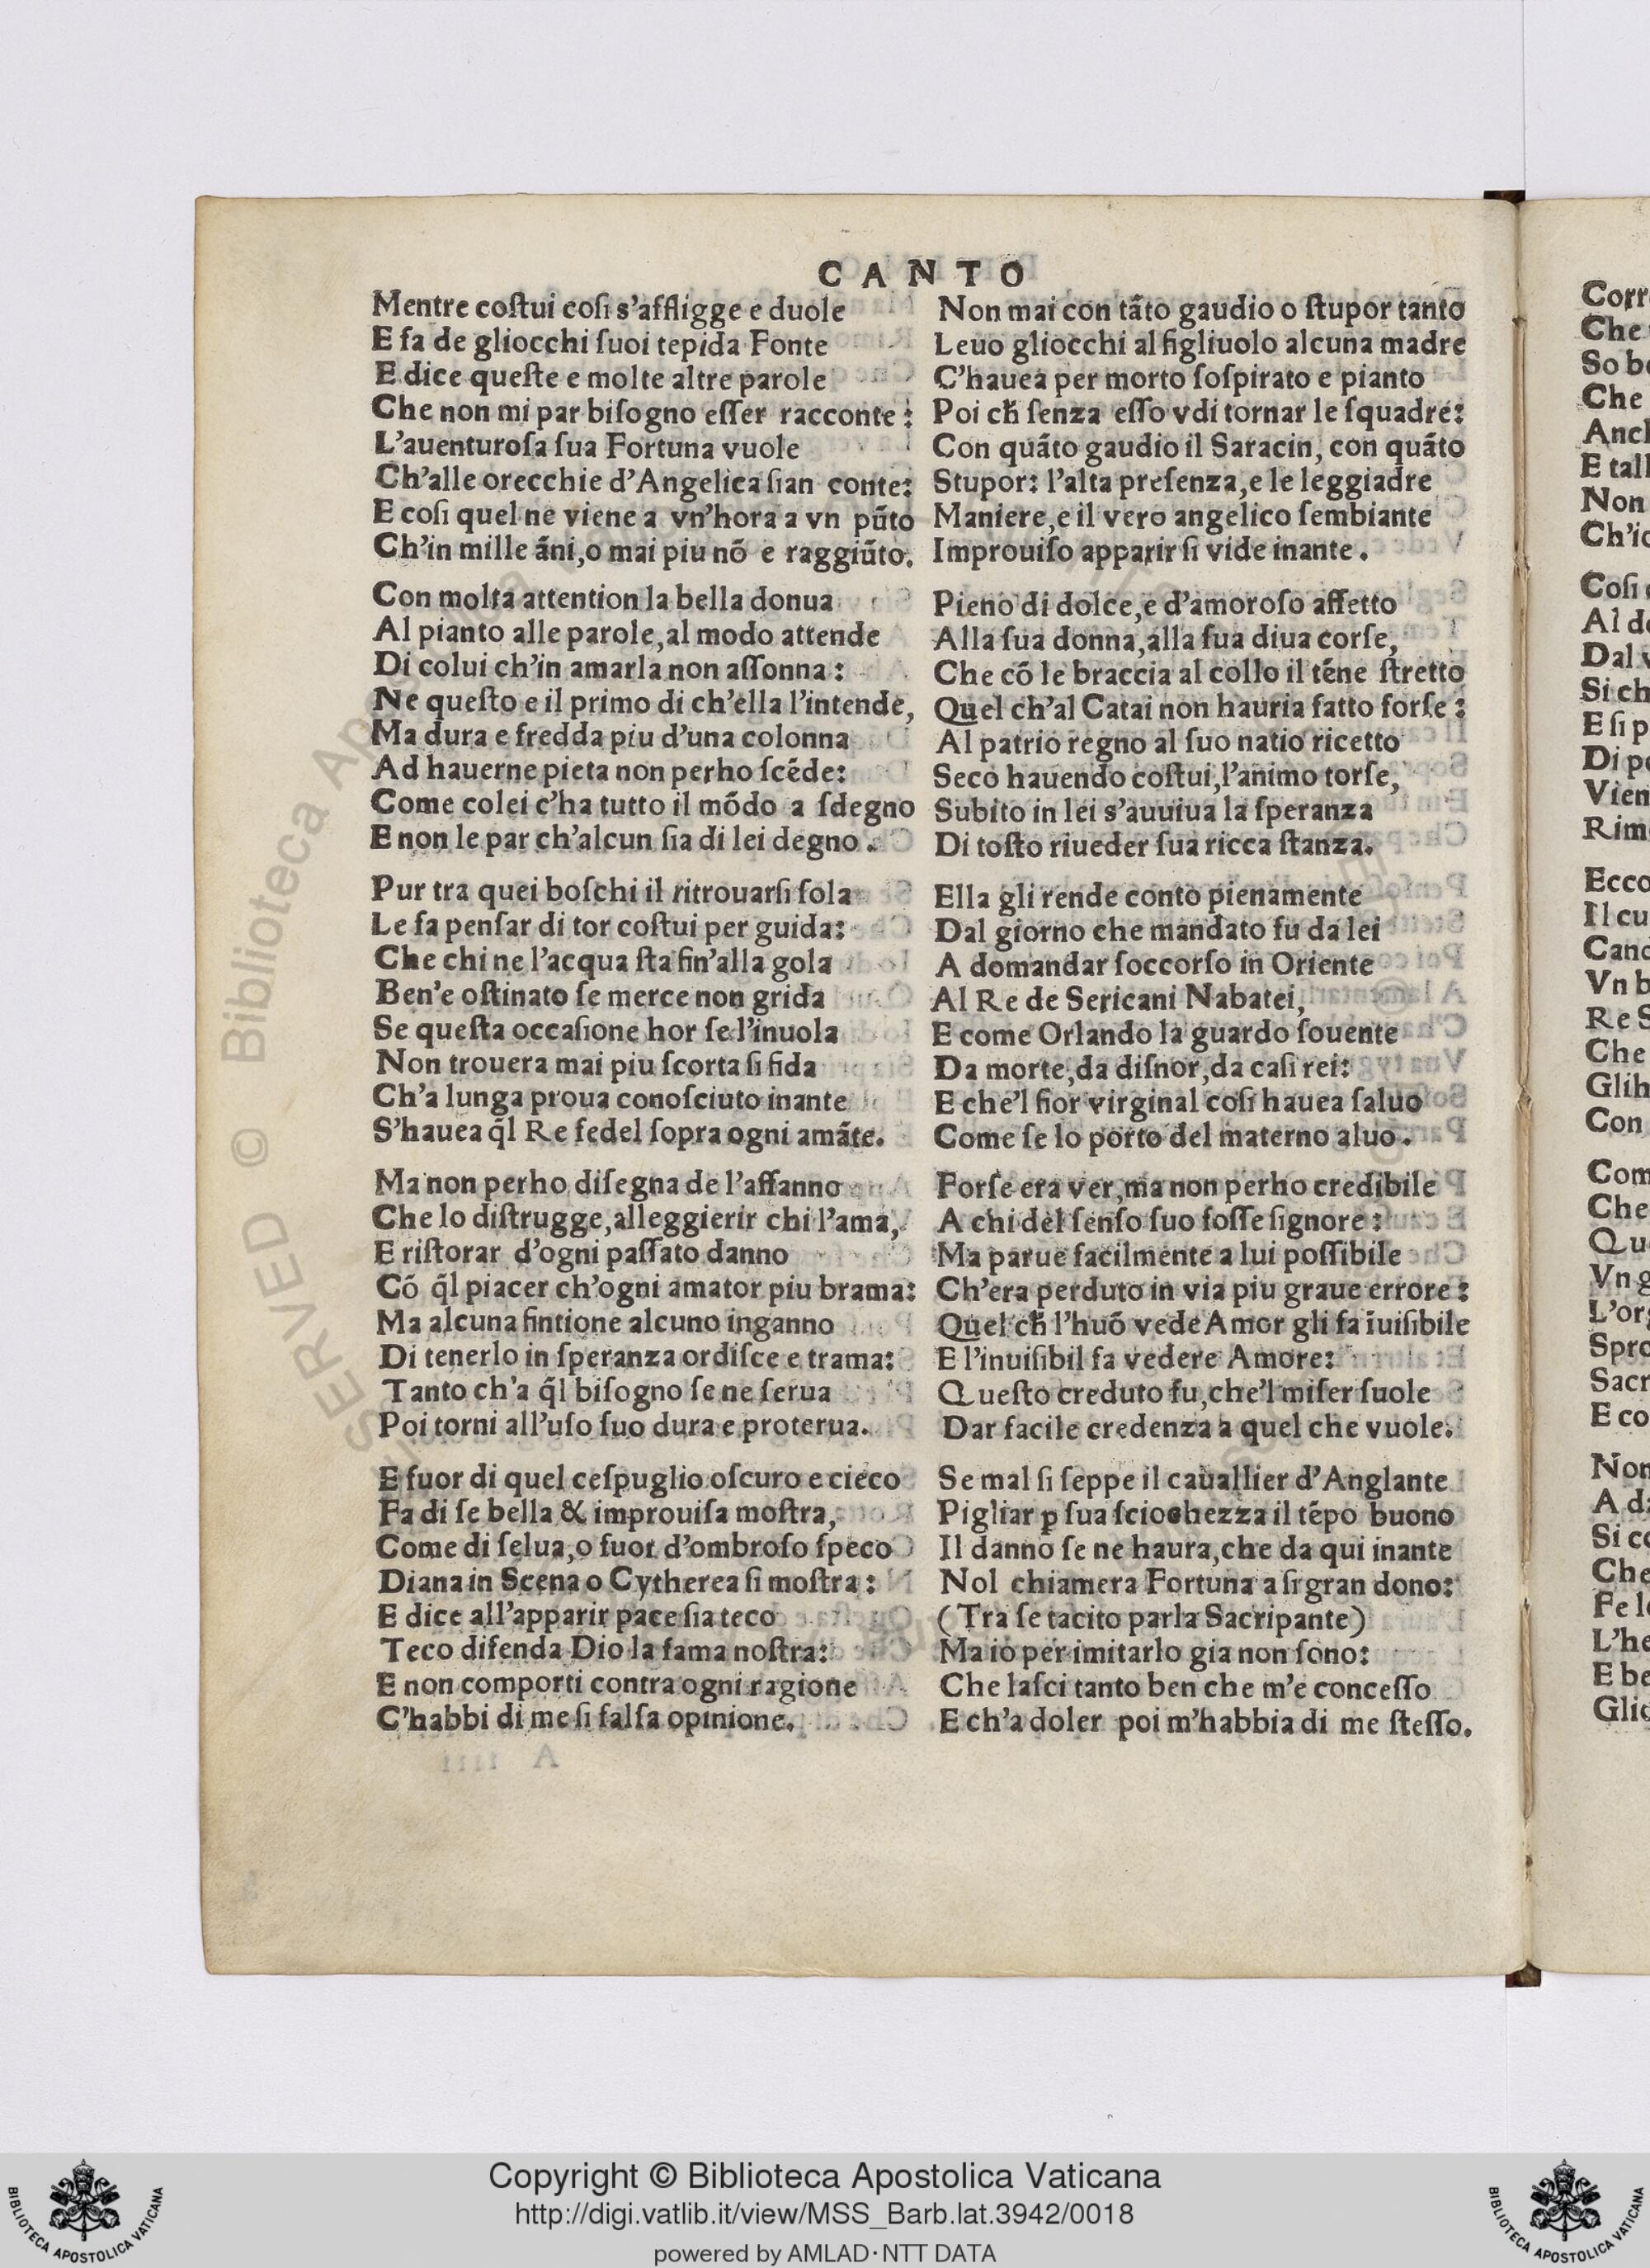 CANTO
Mentre coſtui coſi s'affligge e duole
E fa de gliocchi ſuoi tepida Fonte
E dice queſte e molte altre parole
Che non mi par biſogno eſſer racconte:
L'auenturoſa ſua Fortuna vuole
Ch'alle orecchie d'Angelica ſian conte:
E coſi quel ne viene a vn'hora a vn pũto
Ch'in mille ãni,o mai piu nõ e raggiũto.
Con molta attention la bella donua
Al pianto alle parole,al modo attende
Di colui ch'in amarla non aſſonna:
Ne queſto e il primo di ch'ella l'intende,
Ma dura e fredda piu d'una colonna
Ad hauerne pieta non perho ſcẽde:
Come colei c'ha tutto il mõdo a ſdegno
E non le par ch'alcun ſia di lei degno.
Pur tra quei boſchi il ritrouarſi ſola
Le fa penſar di tor coſtui per guida:
Che chi ne l'acqua ſta fin'alla gola
Ben'e oſtinato ſe merce non grida
Se queſta occaſione hor ſe l'inuola
Non trouera mai piu ſcorta ſi fida
Ch'a lunga proua conoſciuto inante
S'hauea q̃l Re fedel ſopra ogni amãte.
Ma non perho diſegna de l'affanno
Che lo diſtrugge,alleggierir chi l'ama,
E riſtorar d'ogni paſſato danno
Cõ q̃l piacer ch'ogni amator piu brama:
Ma alcuna fintione alcuno inganno
Di tenerlo in ſperanza ordiſce e trama:
Tanto ch'a q̃l biſogno ſe ne ſerua
Poi torni all'uſo ſuo dura e proterua.
E fuor di quel ceſpuglio oſcuro e cieco
Fa di ſe bella & improuiſa moſtra,
Come di ſelua,o fuor d'ombroſo ſpeco
Diana in Scena o Cytherea ſi moſtra:
E dice all'apparir pace ſia teco
Teco difenda Dio la fama noſtra:
E non comporti contra ogni ragione
C'habbi di me ſi falſa opinione.
Non mai con tãto gaudio o ſtupor tanto
Leuo gliocchi al figliuolo alcuna madre
C'hauea per morto ſoſpirato e pianto
Poi ch̃ ſenza eſſo vdi tornar le ſquadre:
Con quãto gaudio il Saracin, con quãto
Stupor: l'alta preſenza,e le leggiadre
Maniere,e il vero angelico ſembiante
Improuiſo apparir ſi vide inante.
Pieno di dolce,e d'amoroſo affetto
Alla ſua donna,alla ſua diua corſe,
Che cõ le braccia al collo il tẽne ſtretto
Quel ch'al Catai non hauria fatto forſe:
Al patrio regno al ſuo natio ricetto
Seco hauendo coſtui,l'animo torſe,
Subito in lei s'auuiua la ſperanza
Di toſto riueder ſua ricca ſtanza.
Ella gli rende conto pienamente
Dal giorno che mandato fu da lei
A domandar ſoccorſo in Oriente
Al Re de Sericani Nabatei,
E come Orlando la guardo ſouente
Da morte,da diſnor,da caſi rei:
E che'l fior virginal coſi hauea ſaluo
Come ſe lo porto del materno aluo.
Forſe era ver,ma non perho credibile
A chi del ſenſo ſuo foſſe ſignore:
Ma parue facilmente a lui poſſibile
Ch'era perduto in via piu graue errore:
Quel ch̃ l'huõ vede Amor gli fa ĩuiſibile
E l'inuiſibil fa vedere Amore:
Queſto creduto fu,che'l miſer ſuole
Dar facile credenza a quel che vuole.
Se mal ſi ſeppe il cauallier d'Anglante
Pigliar ꝑ ſua ſciochezza il tẽpo buono
Il danno ſe ne haura,che da qui inante
Nol chiamera Fortuna a ſi gran dono:
(Tra ſe tacito parla Sacripante)
Ma io per imitarlo gia non ſono:
Che laſci tanto ben che m'e conceſſo
E ch'a doler poi m'habbia di me ſteſſo.
Corr
Che
So be
Che
Ancl
E tall
Non
Ch'io
Coſi
Al de
Dal v
Si ch
E ſi p
Di po
Vien
Rim
Ecco
Il cu
Cand
Vn b
Re S
Che
Glih
Con
Com
Che
Qu
Vn g
L'or
Spro
Sacr
E co
Non
A da
Si co
Che
Fe l
L'he
E be
Glio
SERVED © Biblioteca Ap
Copyright © Biblioteca Apostolica Vaticana
http://digi.vatlib.it/view/MSS_Barb.lat.3942/0018
powered by AMLAD·NTT DATA
BIBLIOTECA APOSTOLICA VATICANA
BIBLIOTECA APOSTOLICA VATICANA